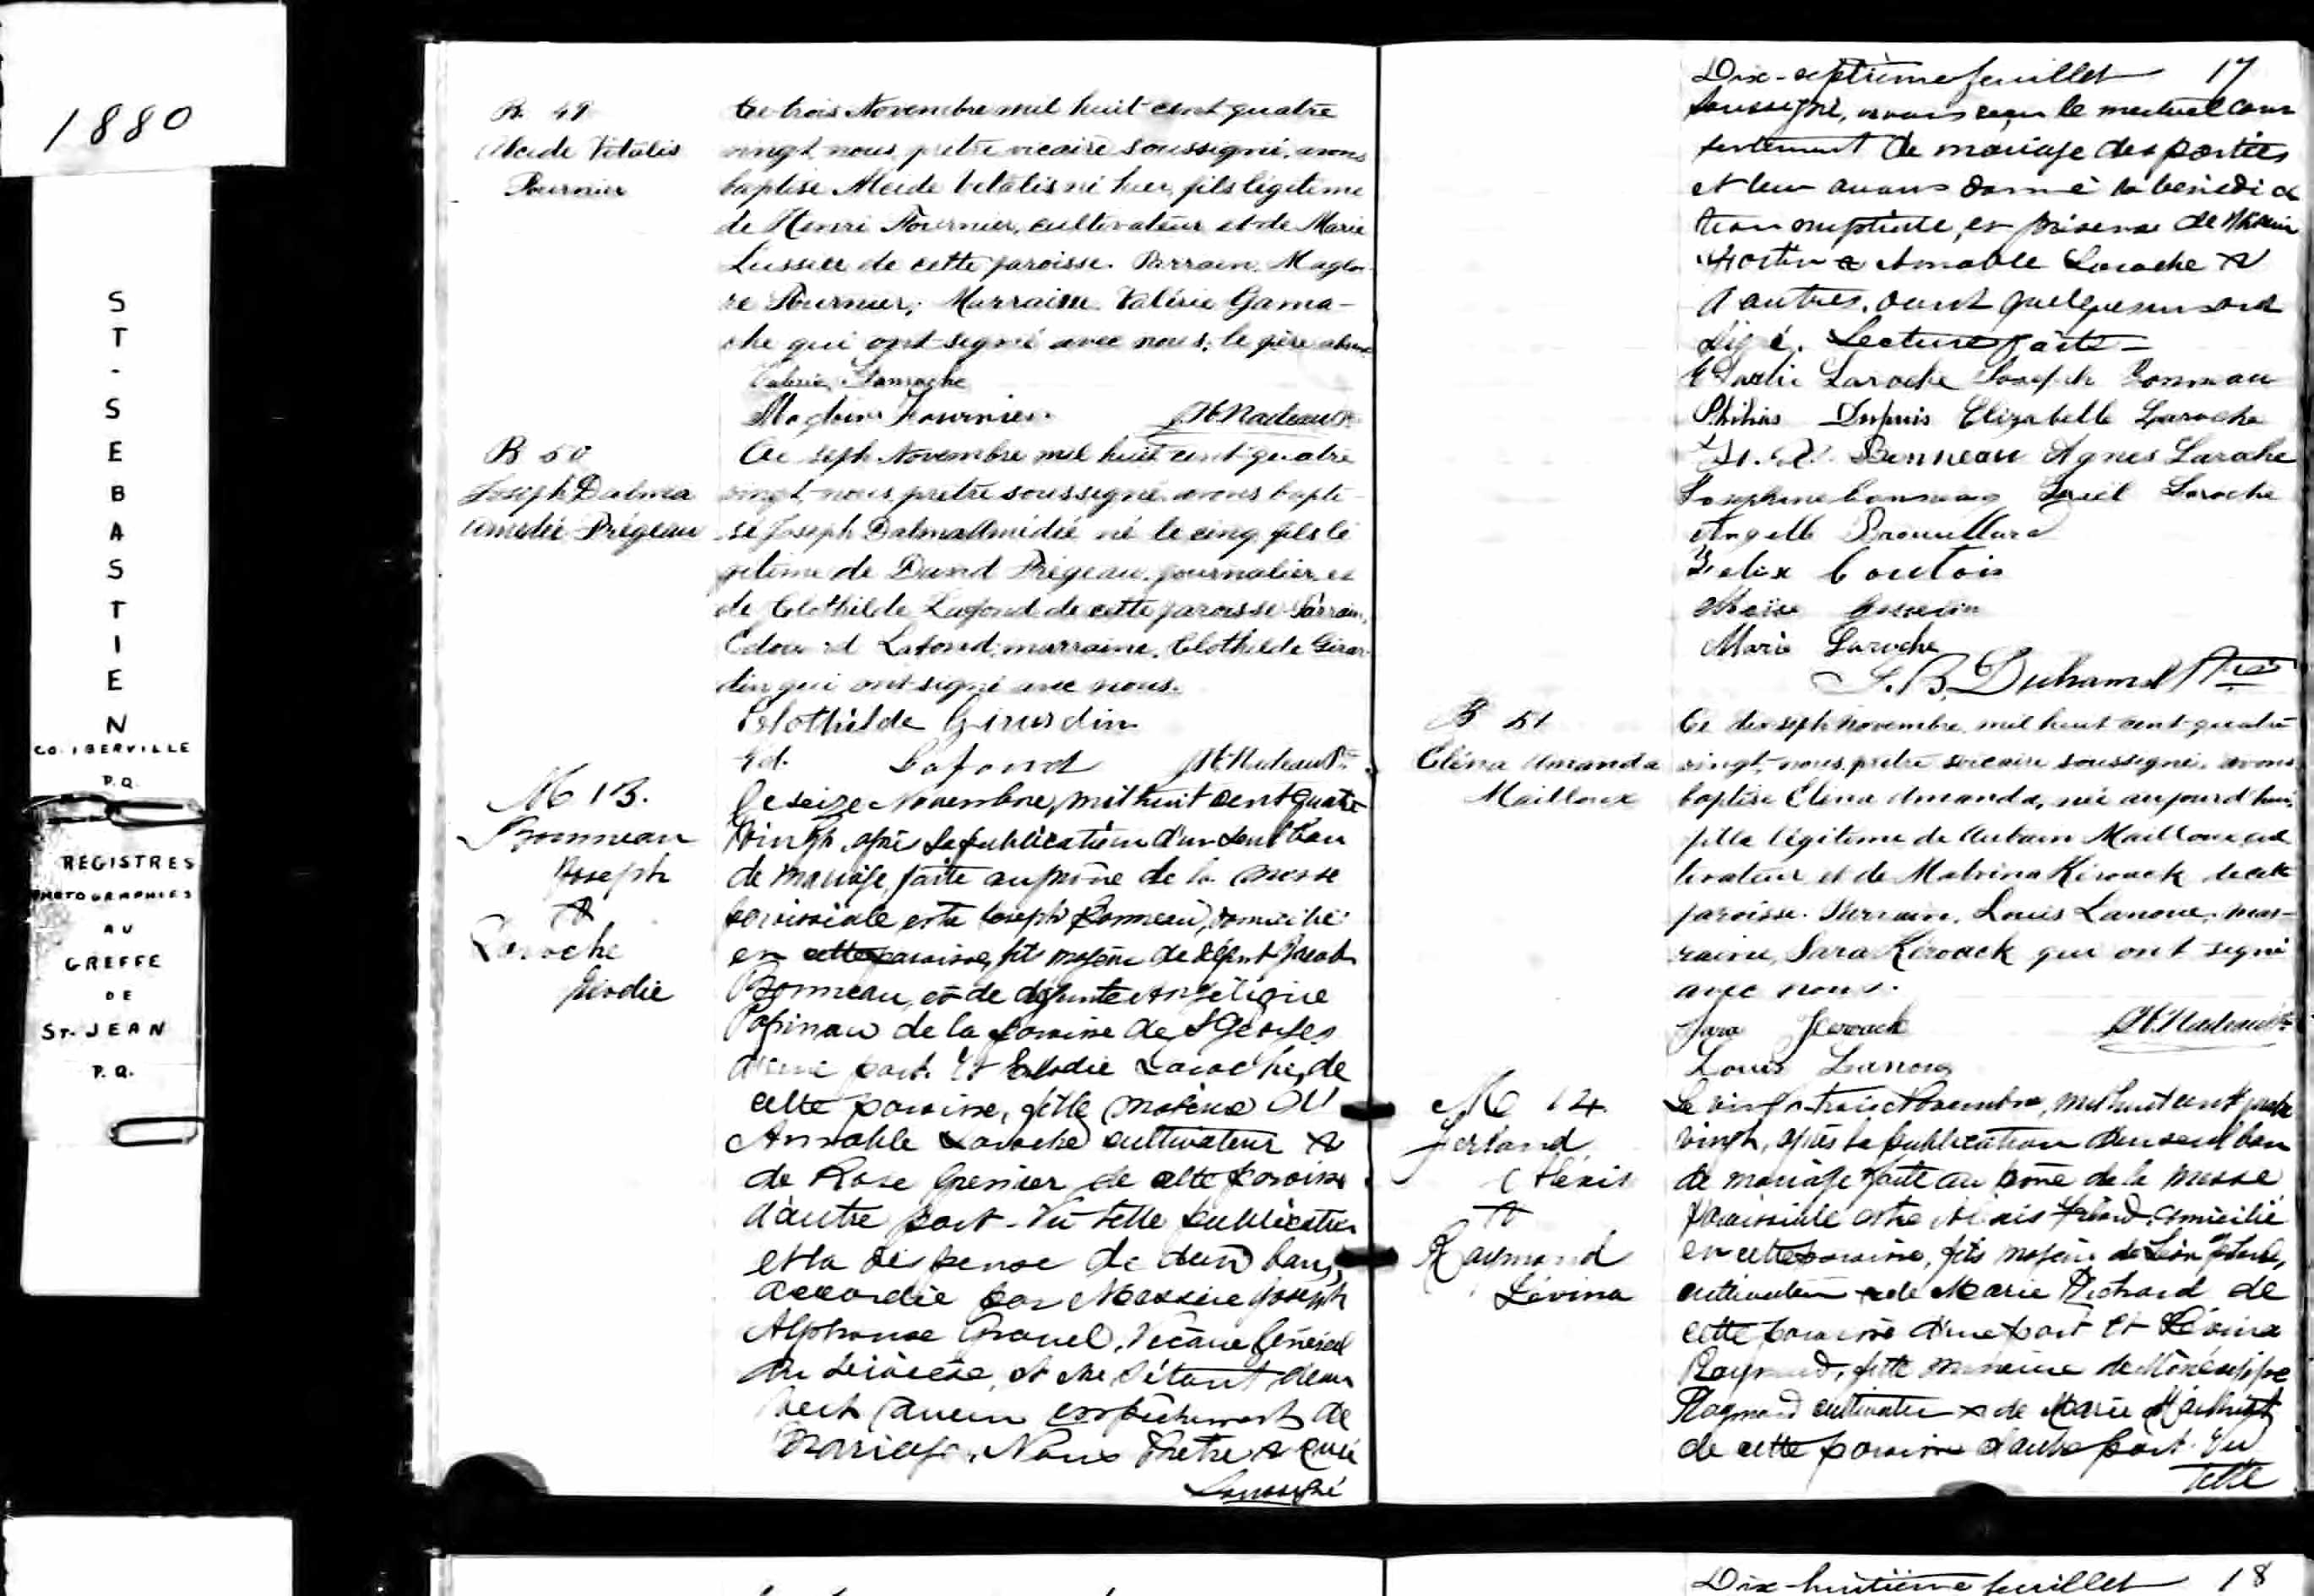 1880
ST-SEBASTIEN
CO. IBERVILLE
P.Q.
REGISTRES
PHOTOGRAPHIES
AU
GREFFE
DE
ST. JEAN
P.Q.
B. 49
Alcide Vitalis
Fournier
Ce trois Novembre mil huit cent quatre
vingt, nous, prêtre vicaire soussigné, avons
baptisé Alcide Vitalis né hier, fils légitime
de Henri Fournier, cultivateur et de Marie
Lussier de cette paroisse. Parrain, Magloi-
re Fournier; Marraine Valérie Gama-
che qui ont signé avec nous, le père absent
Valérie Gamache
Magloire Fournier J.H. Nadeau Ptre
B 50
Joseph Dalma
Amédée Frégeau
Ce sept Novembre mil huit cent quatre
vingt, nous, prêtre soussigné avons bapti-
sé Joseph Dalma Amédée né le cinq, fils lé
gitime de David Frégeau, journalier et
de Clothilde Lafond de cette paroisse. Parrain,
Edouard Lafond, marraine, Clothilde Girar
din qui ont signé avec nous.
Clothilde Girardin
Ed. Lafond J.H. Nadeau Ptre
M 13.
Bonneau
Joseph
&
Laroche
Elodie
Le seize Novembre, mil huit cent quatre
vingt, après la publication d'un seul ban
de mariage, faite au prône de la messe
paroissiale entre Joseph Bonneau, domicilié
en cette paroisse, fils majeur de défunt Jacob
Bonneau, et de défunte Angélique
Papinau de la paroisse de St Georges
d'une part. Et Elodie Laroche, de
cette paroisse, fille majeure d'
Amable Laroche cultivateur &
de Rose Grenier de cette paroisse
d'autre part - Vu telle publication
et la dispense de deux bans,
accordée par Messire Joseph
Alphonse Gravel, Vicaire Général
du diocèse, et ne s'étant décou
vert aucun empêchement de
Mariage, Nous Prêtre & Curé
Soussigné
Dix-septième feuillet 17
soussigné, avons reçu le mutuel con
sentement de mariage des parties
et leur avons donné la bénédic
tion nuptiale, en présence de
& Amable Laroche &
d'autres, dont quelques uns ont
signé. Lecture faite -
Elodie Laroche Joseph Bonneau
Philias Dupuis Elizabelle Laroche
Bonneau Agnes Laroche
Josephine Bonneau Laroche
Angelle Brouillard
Felix Coutois
Moïse Gosselin
Marie Laroche
J.B. Duhamel Ptre
B 51
Eléna Amanda
Mailloux
Ce dix sept Novembre, mil huit cent quatre
vingt, nous, prêtre vicaire soussigné, avons
baptisé Eléna Amanda, née aujourd'hui,
fille légitime de Aubain Mailloux cul
tivateur et de Malvina Kérouack de cette
paroisse. Parrain, Louis Lanoue, mar-
raine, Sara Kérouack qui ont signé
avec nous.
Sara Kerouack J.H. Nadeau Ptre
Louis Lanoue
M 14.
Ferland
Alexis
&
Raymond
Lévina
Le vingt trois Novembre, mil huit cent quatre
vingt, après la publication d'un seul ban
de mariage faite au prône de la messe
paroissiale entre Alexis Ferland, domicilié
en cette paroisse, fils majeur de Léon Ferland,
cultivateur & de Marie Richard de
cette paroisse d'une part Et Lévina
Raymond, fille mineure de
Raymond cultivateur & de Marie
de cette paroisse d'autre part. Vu
telle
Dix-huitième feuillet 18